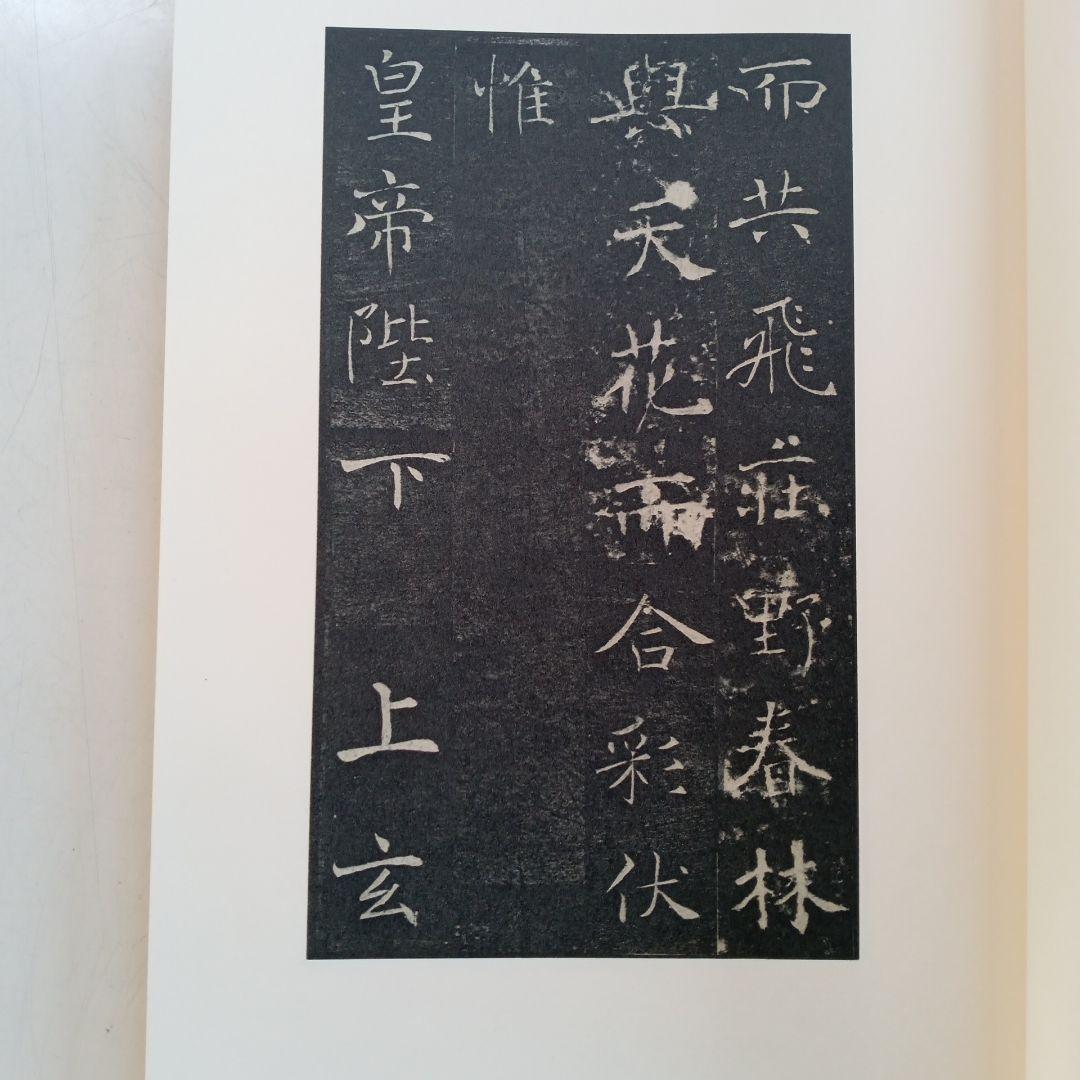 而共飛莊野春林
與天花而合彩伏
惟
皇帝陛下上玄